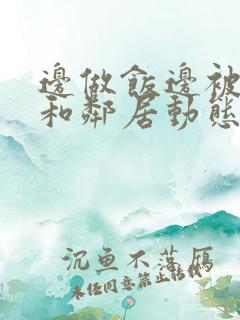 邊做飯邊被
和鄰居動態
沉魚不落雁
未经同意禁止转载